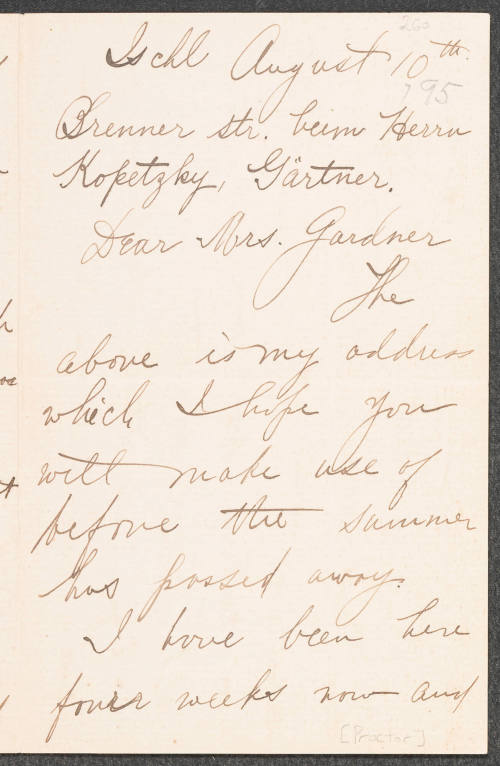 260
Ischl August 10th.
'95
Brenner str. beim Herrn
Kopetzky, Gärtner.
Dear Mrs. Gardner
The
above is my address
which I hope you
will make use of
before the summer
has passed away.
I have been here
four weeks now and
[Proctor]